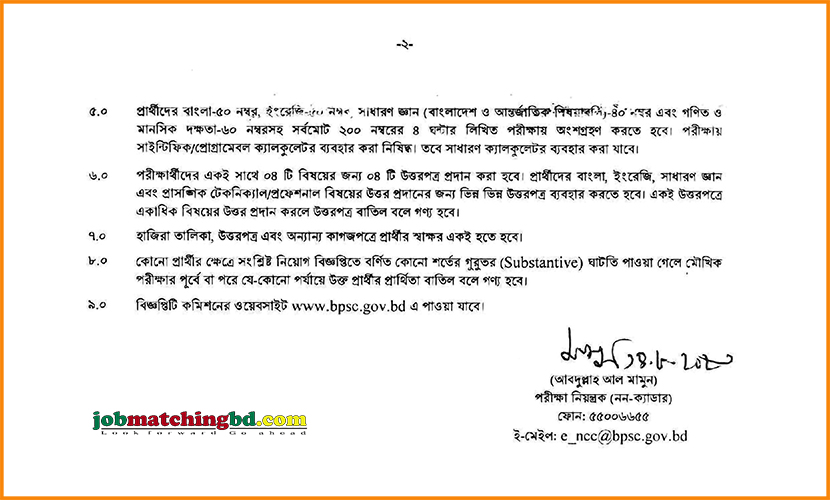 -২-
৫.০ প্রার্থীদের বাংলা-৫০ নম্বর, ইংরেজি-৫০ নম্বর, সাধারণ জ্ঞান (বাংলাদেশ ও আন্তর্জাতিক বিষয়াবলি)-৪০ নম্বর এবং গণিত ও
মানসিক দক্ষতা-৬০ নম্বরসহ সর্বমোট ২০০ নম্বরের ৪ ঘন্টার লিখিত পরীক্ষায় অংশগ্রহণ করতে হবে। পরীক্ষায়
সাইন্টিফিক/প্রোগ্রামেবল ক্যালকুলেটর ব্যবহার করা নিষিদ্ধ। তবে সাধারণ ক্যালকুলেটর ব্যবহার করা যাবে।
৬.০ পরীক্ষার্থীদের একই সাথে ০৪ টি বিষয়ের জন্য ০৪ টি উত্তরপত্র প্রদান করা হবে। প্রার্থীদের বাংলা, ইংরেজি, সাধারণ জ্ঞান
এবং প্রাসঙ্গিক টেকনিক্যাল/প্রফেশনাল বিষয়ের উত্তর প্রদানের জন্য ভিন্ন ভিন্ন উত্তরপত্র ব্যবহার করতে হবে। একই উত্তরপত্রে
একাধিক বিষয়ের উত্তর প্রদান করলে উত্তরপত্র বাতিল বলে গণ্য হবে।
৭.০ হাজিরা তালিকা, উত্তরপত্র এবং অন্যান্য কাগজপত্রে প্রার্থীর স্বাক্ষর একই হতে হবে।
৮.০ কোনো প্রার্থীর ক্ষেত্রে সংশ্লিষ্ট নিয়োগ বিজ্ঞপ্তিতে বর্ণিত কোনো শর্তের গুরুতর (Substantive) ঘাটতি পাওয়া গেলে মৌখিক
পরীক্ষার পূর্বে বা পরে যে-কোনো পর্যায়ে উক্ত প্রার্থীর প্রার্থিতা বাতিল বলে গণ্য হবে।
৯.০ বিজ্ঞপ্তিটি কমিশনের ওয়েবসাইট www.bpsc.gov.bd এ পাওয়া যাবে।
(আবদুল্লাহ আল মামুন)
পরীক্ষা নিয়ন্ত্রক (নন-ক্যাডার)
ফোন: ৫৫০০৬৬৫৫
ই-মেইল: e_ncc@bpsc.gov.bd
jobmatchingbd.com
Look forward Go ahead